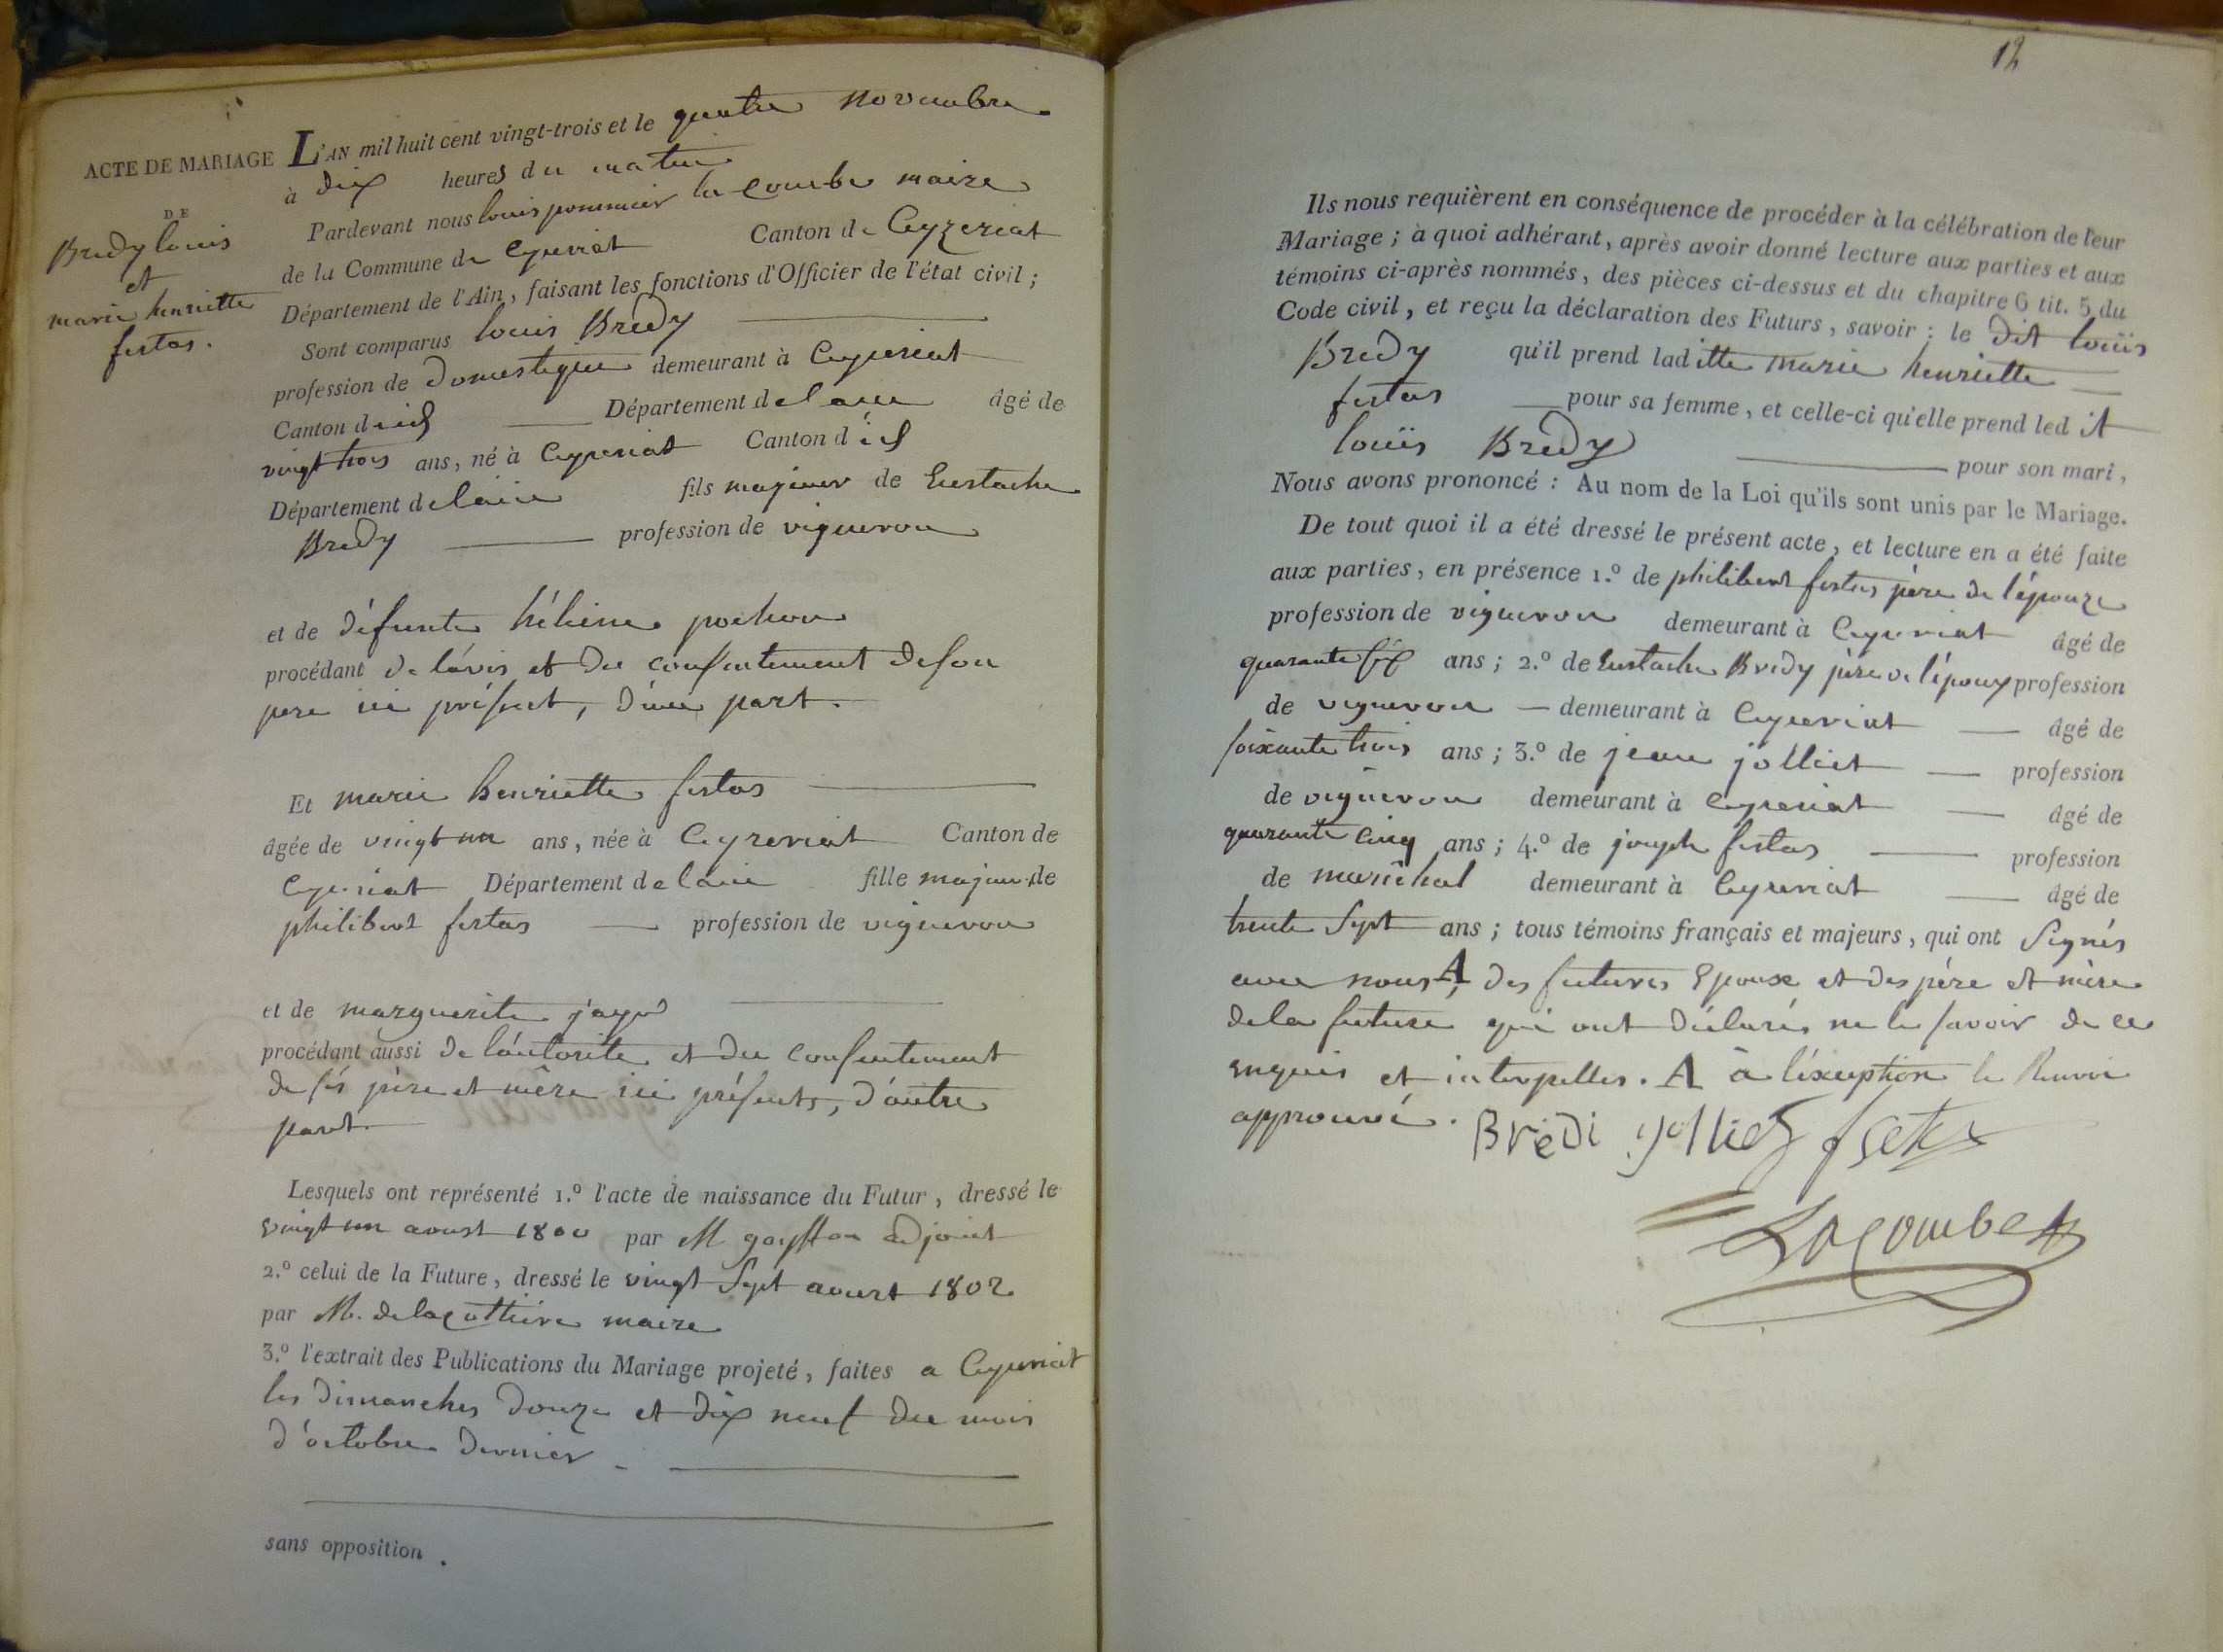 ACTE DE MARIAGE
DE
Bredy louis
et
marie henriette
festas.
L'AN mil huit cent vingt-trois et le quatre novembre
à dix heures du matin
Pardevant nous louis pommier la combe maire
de la Commune de Ceyzeriat Canton de Ceyzeriat
Département de l'Ain, faisant les fonctions d'Officier de l'état civil ;
Sont comparus louis Bredy
profession de domestique demeurant à Ceyzeriat
Canton d Département de lain âgé de
vingt trois ans, né à Ceyzeriat Canton d
Département de lain fils majeur de Eustache
Bredy profession de vigneron
et de défunte héleine pochon
procédant de lávis et du consentement de son
pere ici présent, d'une part.
Et marie henriette festas
âgée de vingt un ans, née à Ceyzeriat Canton de
Ceyzeriat Département de lain fille majeure de
philibert festas profession de vigneron
et de marguerite jayr
procédant aussi de láutorité et du consentement
de sés père et mère ici présents, d'autre
part.
Lesquels ont représenté 1.º l'acte de naissance du Futur, dressé le
vingt un aoust 1800 par M adjoint
2.º celui de la Future, dressé le vingt sept aoust 1802
par M. delacottiere maire
3.º l'extrait des Publications du Mariage projeté, faites a Ceyzeriat
les dimanches douze et dix neuf du mois
d'octobre dernier.
sans opposition.
12
Ils nous requièrent en conséquence de procéder à la célébration de leur
Mariage ; à quoi adhérant, après avoir donné lecture aux parties et aux
témoins ci-après nommés, des pièces ci-dessus et du chapitre 6 tit. 5 du
Code civil, et reçu la déclaration des Futurs, savoir : le dit louïs
Bredy qu'il prend laditte marie henriette
festas pour sa femme, et celle-ci qu'elle prend ledit
louïs Bredy pour son mari,
Nous avons prononcé : Au nom de la Loi qu'ils sont unis par le Mariage.
De tout quoi il a été dressé le présent acte, et lecture en a été faite
aux parties, en présence 1.º de philibert festas père de l'épouze
profession de vigneron demeurant à Ceyzeriat âgé de
quarante six ans ; 2.º de Eustache Bredy père de l'époux profession
de vigneron demeurant à Ceyzeriat âgé de
soixante trois ans ; 3.º de jean jolliet profession
de vigneron demeurant à Ceyzeriat âgé de
quarante cinq ans ; 4.º de joseph festas profession
de maréchal demeurant à Ceyzeriat âgé de
trente sept ans ; tous témoins français et majeurs, qui ont signés
avec nous A, des futures Epoux et des père et mère
de la future qui ont déclarés ne le savoir de ce
enquis et interpellés. A à léxeption le Renvoi
approuvé. Brédi jolliet
Lacombe